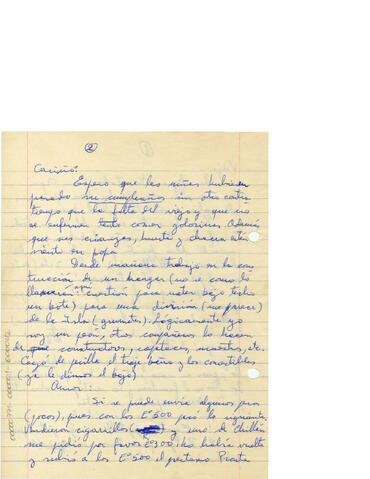 ②
Cariño:
Espero que las niñas hubiesen
pasado su cumpleaños sin otro contra
tiempo que la falta del viejo y que no
se enfermen tanto comer golosinas. Además
que sus crianzas, huerto y chacra estén
viento en popa
Desde mañana trabajo en la cons
trucción de un hangar (no sé como lo
llamarán: cuestión para meter bajo techo
un bote) para una división (me parece)
de la Isla (grumetes). Lógicamente yo
soy un peón, otros compañeros la hacen
de constructores, capataces, maestros, etc.
Cayó de perilla el traje baño y los
(ya le dimos el bajo)
Amor:
Si se puede envía algunos pesos
(pocos), pues con los Eº500 pasó lo siguiente.
Vendieron cigarrillos y uno de Chillán
me pidió por favor Eº300, los había vuelto
y subió a los Eº500 el préstamo.